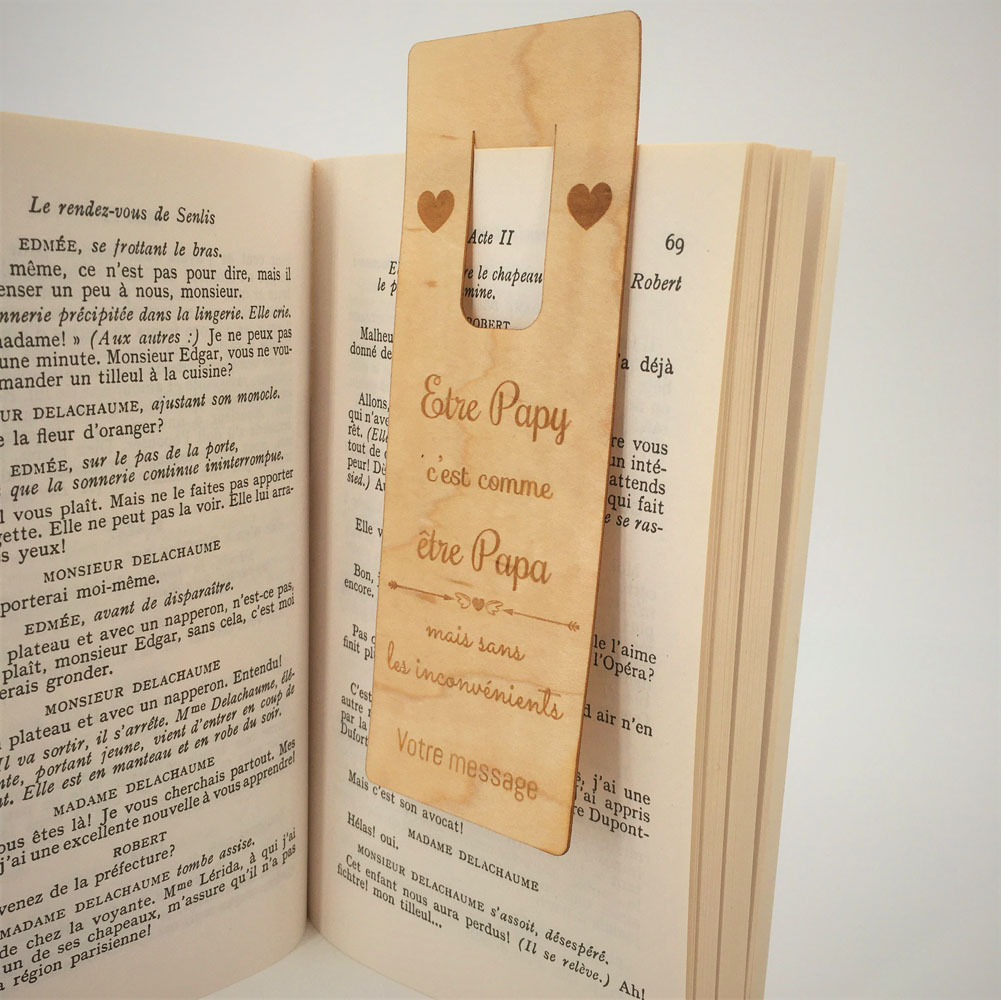 Le rendez-vous de Senlis
EDMÉE, se frottant le bras.
même, ce n'est pas pour dire, mais il
enser un peu à nous, monsieur.
nnerie précipitée dans la lingerie. Elle crie.
adame! » (Aux autres :) Je ne peux pas
une minute. Monsieur Edgar, vous ne vou-
mander un tilleul à la cuisine?
UR DELACHAUME, ajustant son monocle.
e la fleur d'oranger?
EDMÉE, sur le pas de la porte,
que la sonnerie continue ininterrompue.
l vous plaît. Mais ne le faites pas apporter
gette. Elle ne peut pas la voir. Elle lui arra-
s yeux!
MONSIEUR DELACHAUME
porterai moi-même.
EDMÉE, avant de disparaître.
plateau et avec un napperon, n'est-ce pas,
plaît, monsieur Edgar, sans cela, c'est moi
erais gronder.
MONSIEUR DELACHAUME
plateau et avec un napperon. Entendu!
Il va sortir, il s'arrête. Mme Delachaume, élé-
nte, portant jeune, vient d'entrer en coup de
t. Elle est en manteau et en robe du soir.
MADAME DELACHAUME
ous êtes là! Je vous cherchais partout. Mes
j'ai une excellente nouvelle à vous apprendre!
ROBERT
venez de la préfecture?
MADAME DELACHAUME tombe assise.
de chez la voyante. Mme Lérida, à qui j'ai
un de ses chapeaux, m'assure qu'il n'a pas
a région parisienne!
Acte II
69
re le chapeau
Robert
le p
mine.
ROBERT
Malheu
a déjà
donné de
Allons,
qui n'ave
re vous
rêt. (Elle
un inté-
tout de
attends
peur! Dè
qui fait
sied.) A
e se ras-
Elle v
Bon, j
encore.
Pas c
le l'aime
finit pl
l'Opéra?
C'est
autre r
d air n'en
par la
Dufort
, j'ai une
j'ai appris
re Dupont-
Mais c'est son avocat!
MADAME DELACHAUME
Hélas! oui.
MONSIEUR DELACHAUME s'assoit, désespéré.
Cet enfant nous aura perdus! (Il se relève.) Ah!
fichtre! mon tilleul...
Etre Papy
c'est comme
être Papa
mais sans
les inconvénients
Votre message